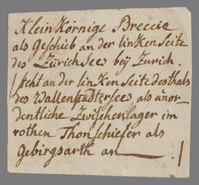 Kleinkörnige Breccie
als Geschieb an der linken Seite
des Zürich Sees bey Zurich.
steht an der linken Seite des thals
des Wallenstadtersees als unor-
dentliche Zwischenlager im
rothen Thonschiefer als
Gebirgsarth an